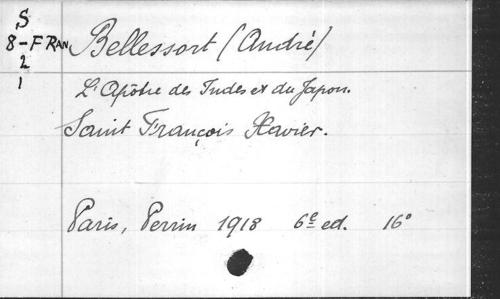 S
8-FRAN
2
1
Bellessort (André)
L'Apôtre des Indes et du Japon.
Saint François Xavier.
Paris, Perrin 1918 6e ed. 16°